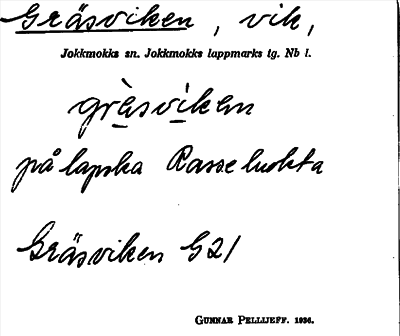 Gräsviken, vik,
Jokkmokks sn. Jokkmokks lappmarks tg. Nb l.
grèsviken
på lapska Rasseluokta
Gräsviken G21
GUNNAR PELLIJEFF. 1936.